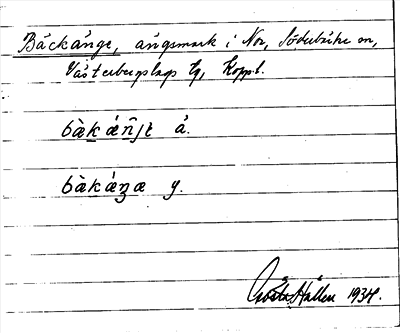 Bäckänge, ängsmark i Nor, Söderbärke sn,
Västerbergslags tg, Kopp.l.
bàkáñjɛ ä.
bàkáŋæ y.
Gösta Hållen 1934.